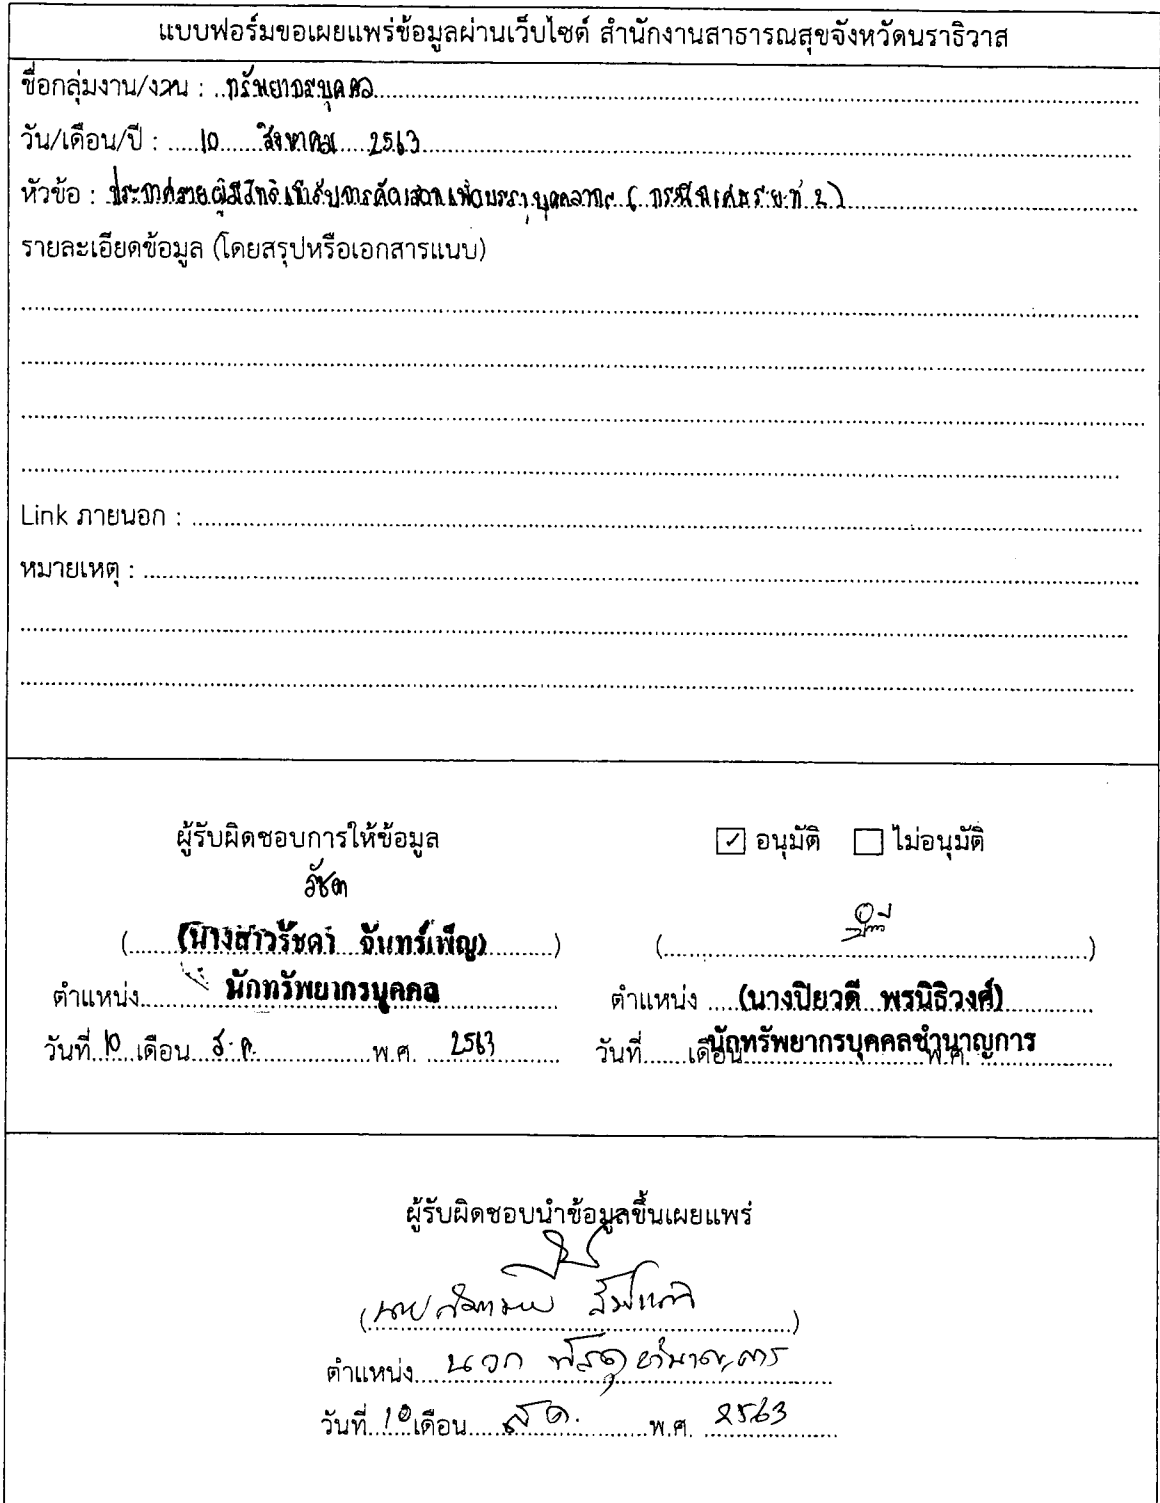 แบบฟอร์มขอเผยแพร่ข้อมูลผ่านเว็บไซต์ สำนักงานสาธารณสุขจังหวัดนราธิวาส
ชื่อกลุ่มงาน/งาน : ทรัพยากรบุคคล
วัน/เดือน/ปี : 10 สิงหาคม 2563
หัวข้อ : ประกาศรายผู้มีสิทธิเข้ารับการคัดเลือกเพื่อบรรจุบุคคลากร ( กรณีพิเศษระยะที่ 2 )
รายละเอียดข้อมูล (โดยสรุปหรือเอกสารแนบ)
Link ภายนอก :
หมายเหตุ :
ผู้รับผิดชอบการให้ข้อมูล
รัชดา
(นางสาวรัชดา จันทร์เพ็ญ)
ตำแหน่ง นักทรัพยากรบุคคล
วันที่ 10 เดือน ส.ค. พ.ศ. 2563
☑ อนุมัติ ☐ ไม่อนุมัติ
ตำแหน่ง (นางปิยวดี พรนิธิวงศ์)
นักทรัพยากรบุคคลชำนาญการ
วันที่ เดือน พ.ศ.
ผู้รับผิดชอบนำข้อมูลขึ้นเผยแพร่
ตำแหน่ง นวก พัสดุชำนาญการ
วันที่ 10 เดือน ส.ค. พ.ศ. 2563